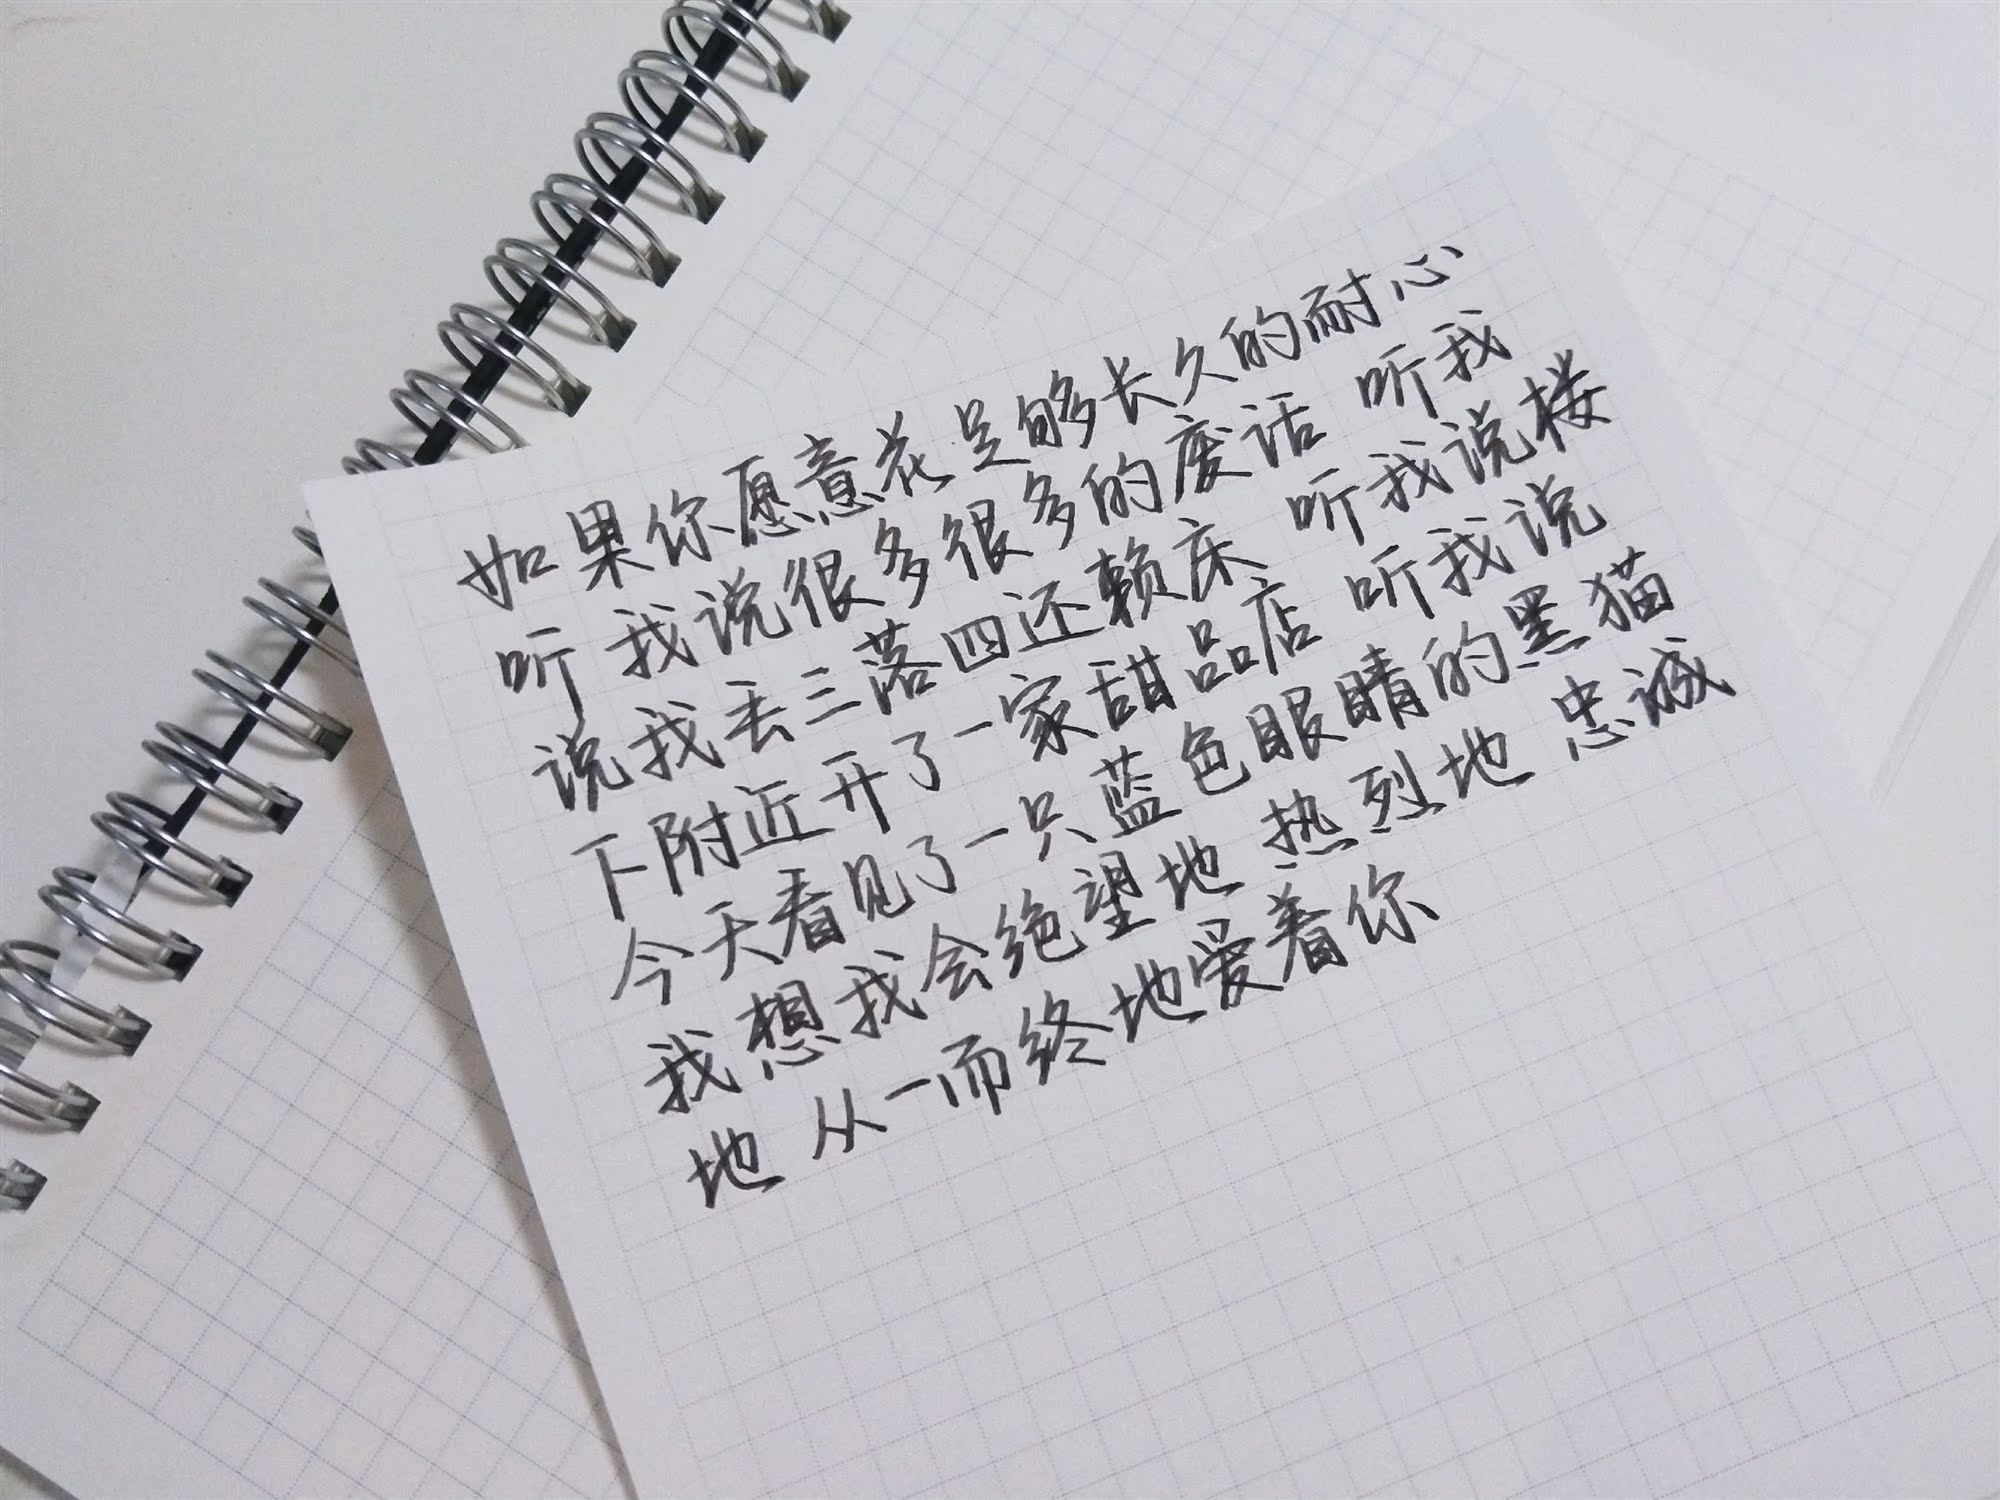 如果你愿意花足够长久的耐心
听我说很多很多的废话 听我
说我丢三落四还赖床 听我说楼
下附近开了一家甜品店 听我说
今天看见了一只蓝色眼睛的黑猫
我想我会绝望地 热烈地 忠诚
地 从一而终地爱着你